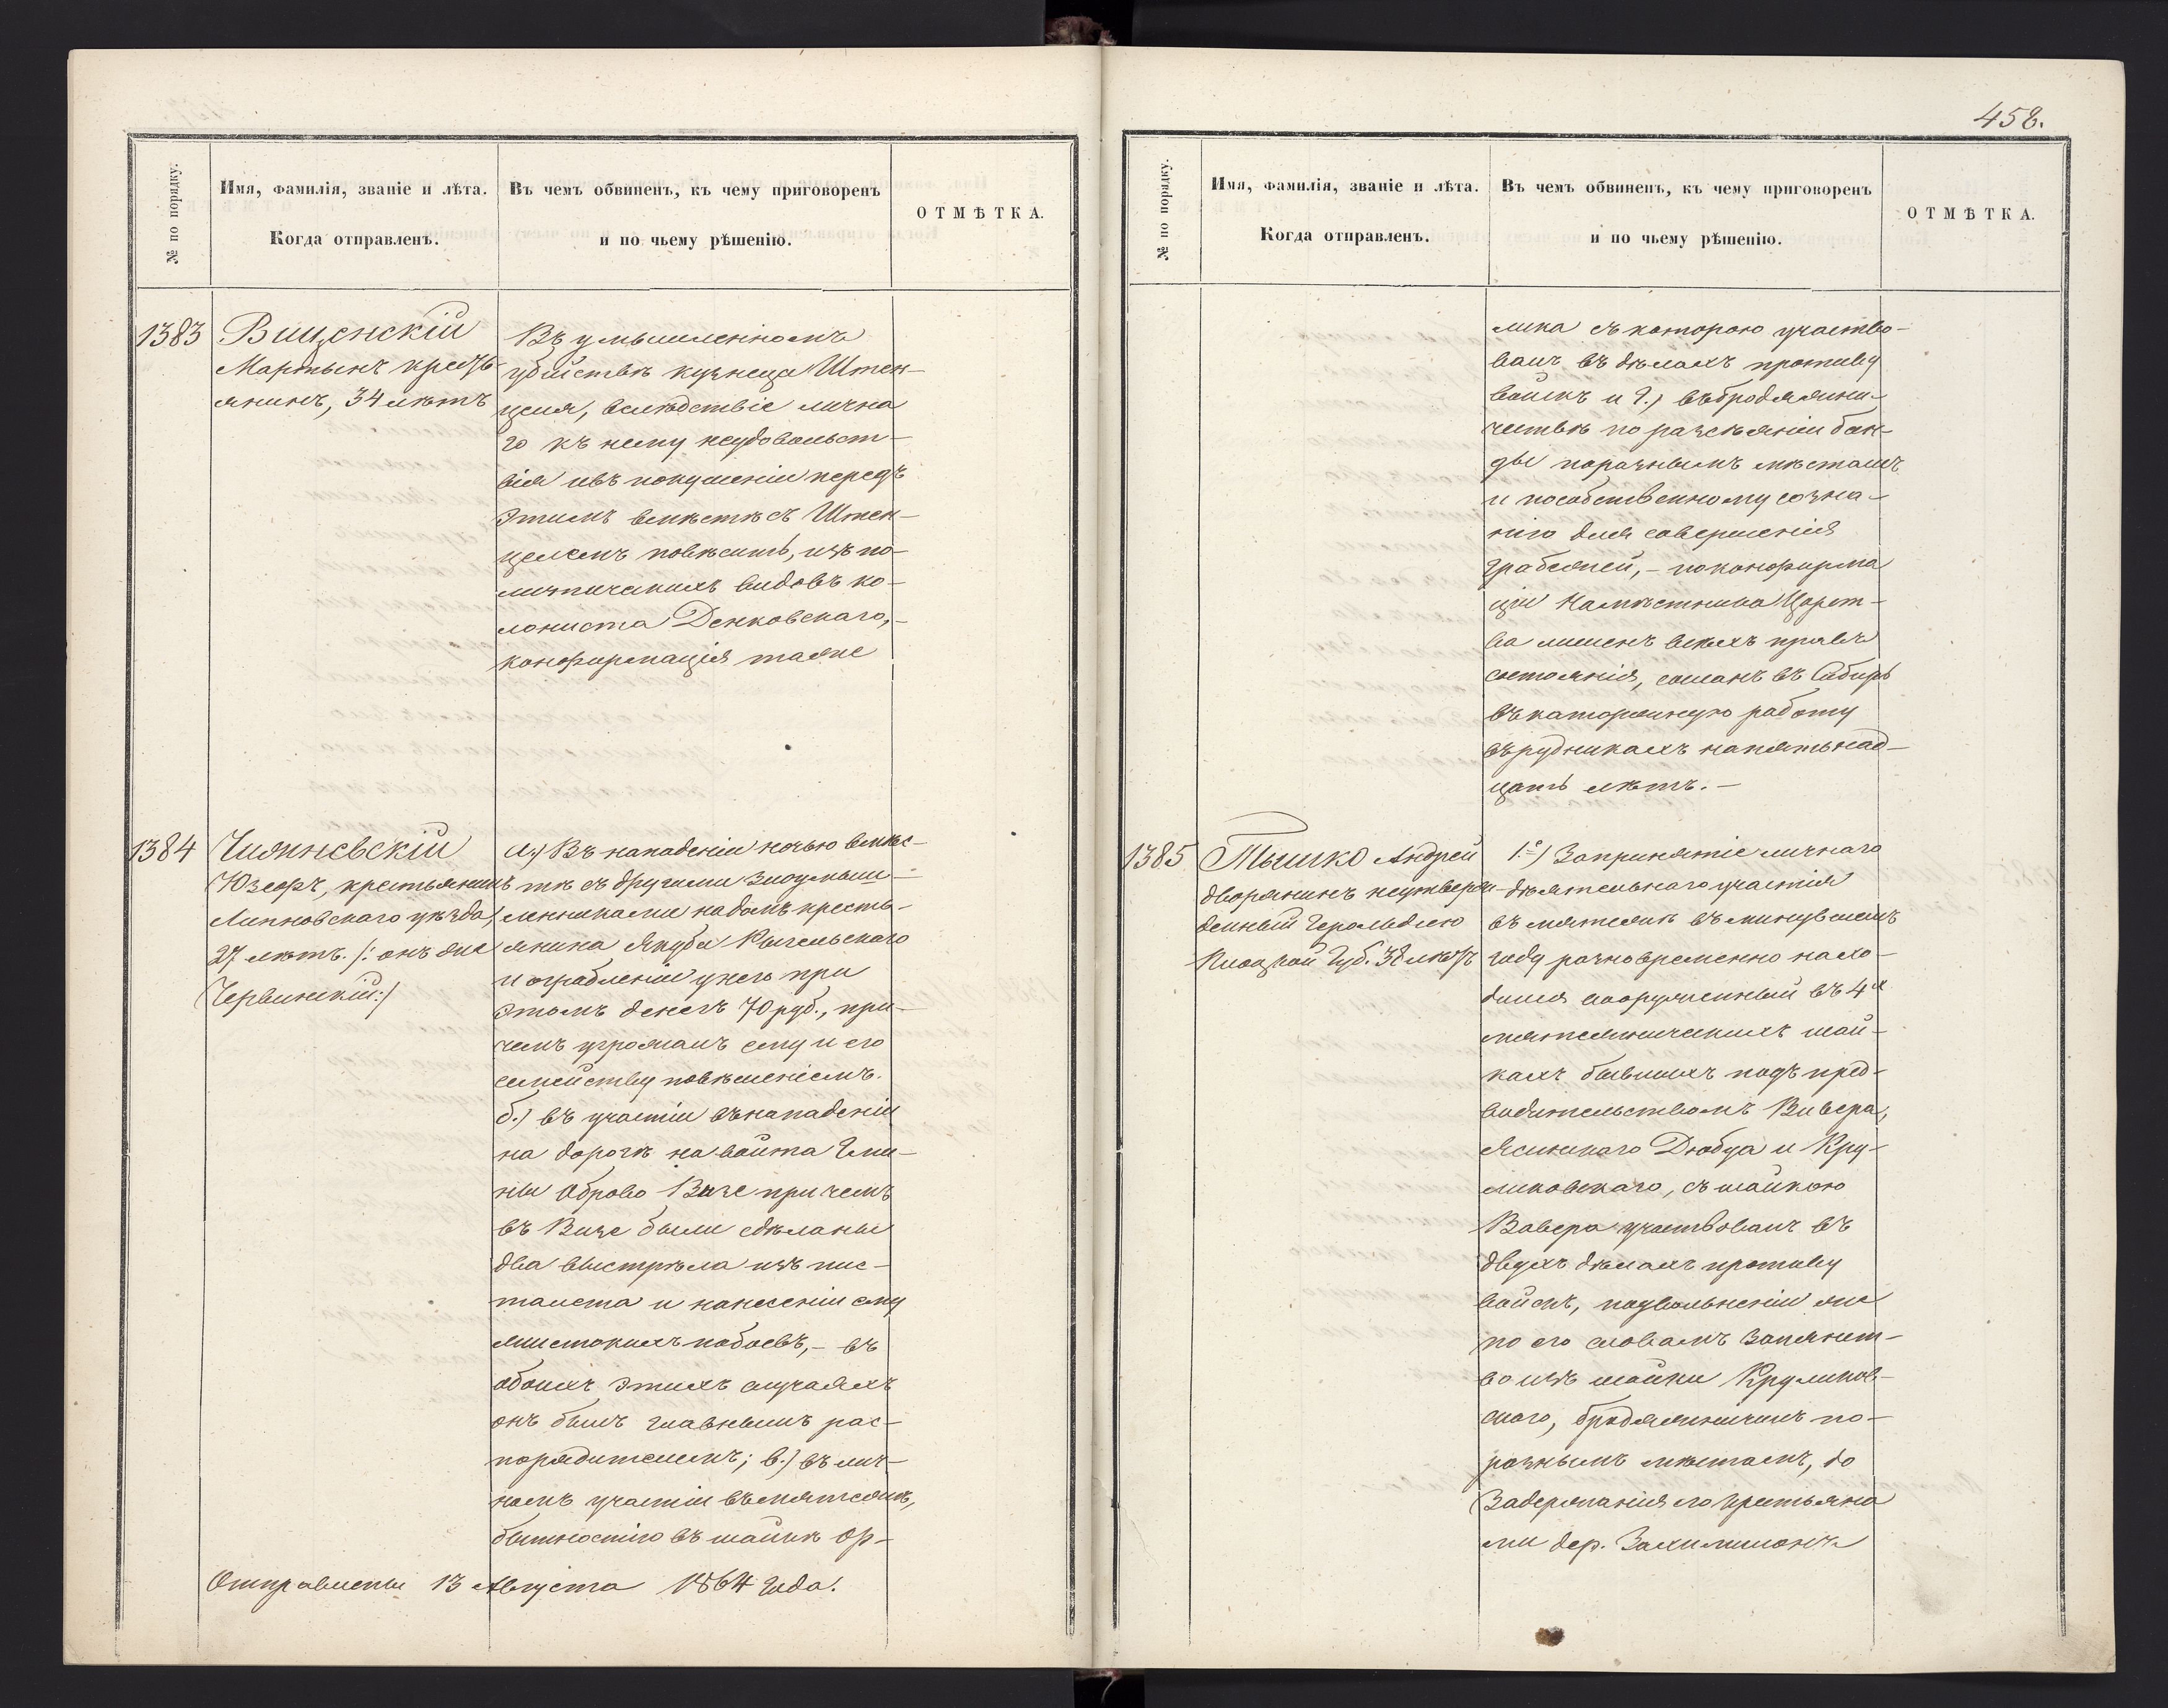 458.
№ по порядку.
Имя, фамилія, званіе и лѣта.
Когда отправленъ.
Въ чемъ обвиненъ, къ чему приговоренъ
и по чьему рѣшенію.
ОТМѢТКА.
1383
Вищенскій
Мартынъ кресть-
янинъ, 34 лѣтъ
Въ умышленномъ
убійствѣ кузнеца Штен-
целя, вслѣдствіе лична
го къ нему неудовольст-
вія ивъ покушеніи передъ
этимъ вмѣстѣ съ Штен-
целемъ повѣсить, изъ по-
литическихъ видовъ ко-
лониста Денковскаго,-
конфирмація таже
1384
Юзефъ, крестьянинъ
Липновскаго уѣзда,
27 лѣтъ. /: онъ же
Червинскій:/
а.) Въ нападеніи ночью вмѣс-
тѣ съ другими злоумыш-
ленниками надомъ кресть-
янина Якуба
и ограбленіи унего при
этомъ денегъ 70 руб., при-
чемъ угрожалъ ему и его
семейству повѣшеніемъ.
б.) въ участіи внападеніи
на дорогѣ на войта Гми-
ны Оброво при чемъ
въ были сдѣланы
два выстрѣла изъ пис-
толета и нанесеніи ему
жистокихъ побоевъ,- въ
обоихъ этихъ случаяхъ
онъ былъ главнымъ рас-
порядителемъ; в.) въ лич-
номъ участіи вмятежѣ,
бытностію въ шайкѣ Ор-
Отправлены 13 Августа 1864 Года.
№ по порядку.
Имя, фамилія, званіе и лѣта.
Когда отправленъ.
Въ чемъ обвиненъ, къ чему приговоренъ
и по чьему рѣшенію.
ОТМѢТКА.
лика съ которою участво-
валъ въ дѣлахъ противу
войскъ и г.) въ бродяжни-
чествѣ по разсѣяніи бан-
ды поразнымъ мѣстамъ
и пособственному созна-
нію для совершенія
грабежей,- поконфирма
ціи Намѣстника Царст-
ва лишенъ всѣхъ правъ
состоянія, сосланъ въ Сибирь
въ каторжную работу
въ рудникахъ напятьнад-
цать лѣтъ.-
1385
Тышко Андрей
дворянинъ неутверж-
денный Герольдіею
Плоцкой Губ. 38 лѣтъ
1.е) Запринятіе личнаго
дѣятельнаго участія
въ мятежѣ въ минувшемъ
году разновременно нахо-
дился вооруженный въ 4х
мятежническихъ шай-
кахъ бывшихъ подъ пред-
водительствомъ Вавера,
Ясинскаго Дюбуа и Кру-
ликовскаго, съ шайкою
Вавера участвовалъ въ
двухъ дѣлахъ противу
войскъ, поувольненіи же
по его словамъ
изъ шайки Круликов-
скаго, бродяжничилъ по-
разнымъ мѣстамъ, до
Задержанія его крестьяна
ми дер.